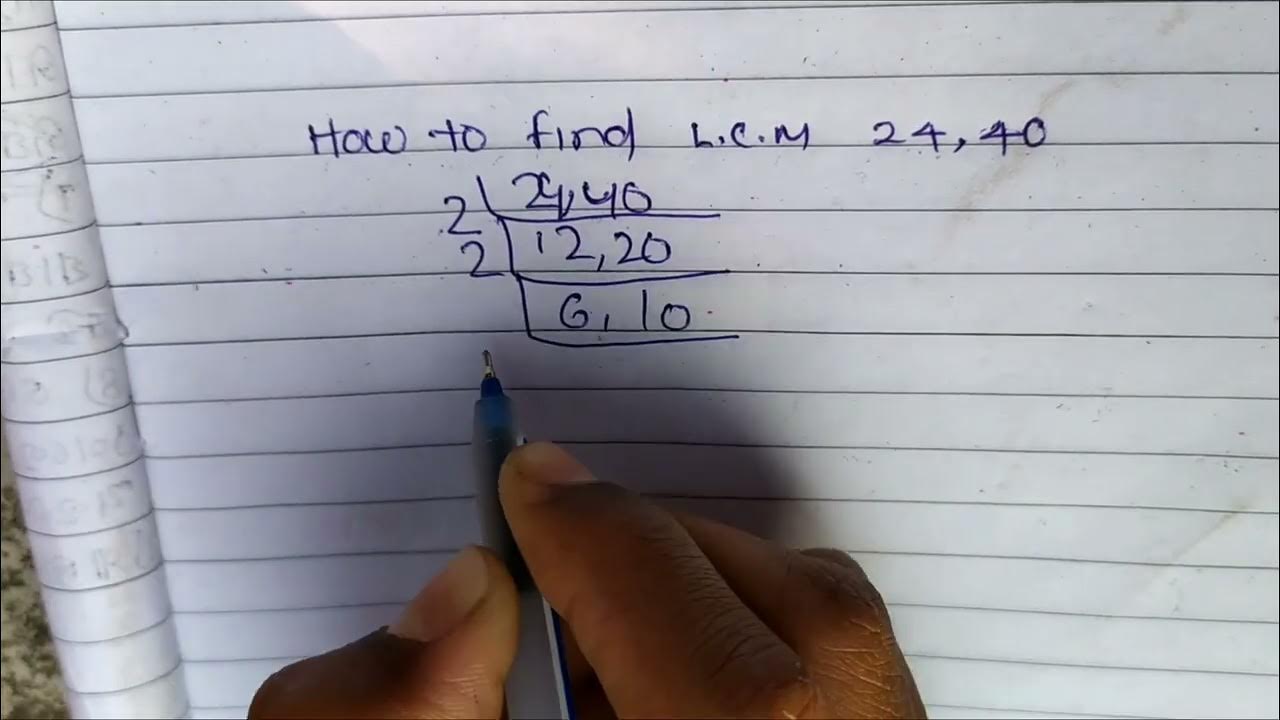 How to find L.C.M 24, 40
2 24, 40
2 12, 20
6, 10